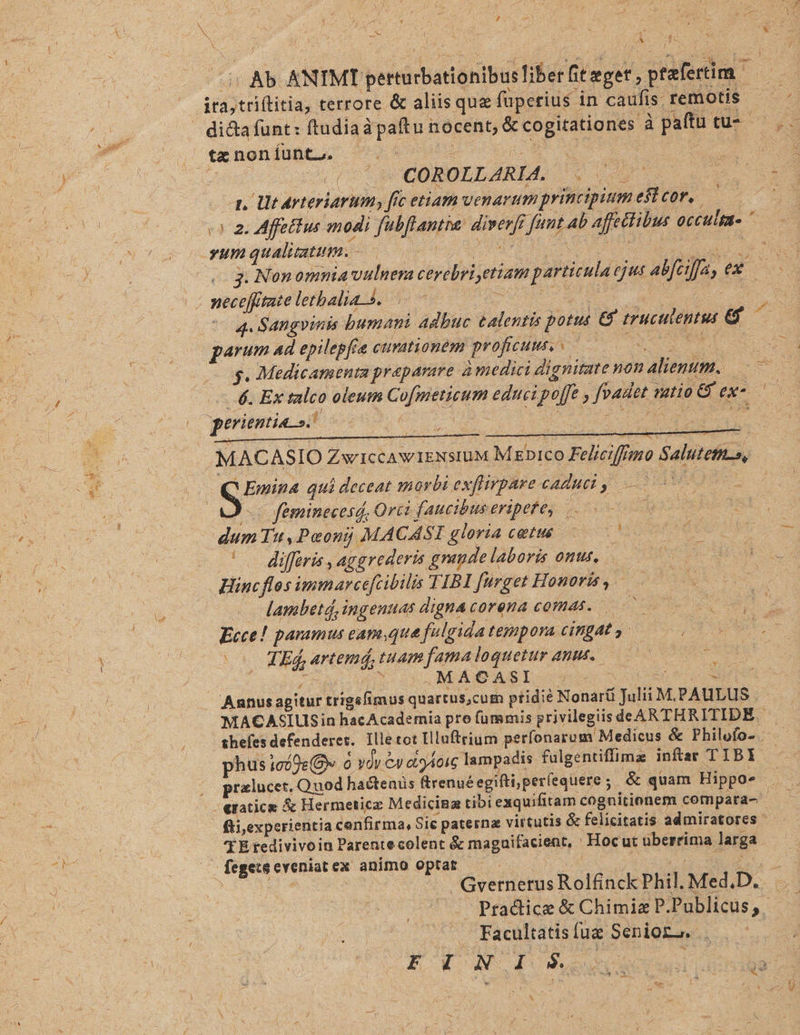 Ab ANIMI perturbationibus liber ſit æger, præſertim
ira, triſtitia, terrore & aliis quæ ſuperius in cauſis remotis
dicta ſunt: ſtudia à paſtu nocent, & cogitationes à paſtu tu-
tæ non ſunt.
COROLLARIA.
1. Ut arteriarum, ſic etiam venarum principium eſt cor.
2. Affectus modi ſubſtantiæ diverſi ſunt ab affectibus occulta-
rum qualitatum.
3. Non omnia vulnera cerebri, etiam particula ejus abſciſſa, ex
neceſſitate lethalia.
4. Sangvinis humani adhuc calentis potus & truculentus &
parum ad epilepſiæ curationem proficuus.
5. Medicamenta præparare à medici dignitate non alienum.
6. Ex talco oleum Coſmeticum educi poſſe, ſvadet ratio & ex-
perientia.
MACASIO ZWICCAWIENSIUM MEDICO Feliciſſimo Salutem,
SEmina qui deceat morbi exſtirpare caduci,
ſeminecesq́; Orci faucibus eripere,
dum Tu, Pæonij MACASI gloria cætus
differis, aggrederis grande laboris onus.
Hinc flos immarceſcibilis TIBI ſurget Honoris,
lambetq́; ingenuas digna corona comas.
Ecce! paramus eam, quæ fulgida tempora cingat,
TEq́; artemq́; tuam fama loquetur anus.
MACASI
Annus agitur trigeſimus quartus, cum pridiè Nonarũ Julii M. PAULUS
MACASIUS in hac Academia pro ſummis privilegiis de ARTHRITIDE
theſes defenderet. Ille tot Illuſtrium perſonarum Medicus & Philoſo-
phus ἰσόθεος ὁ νῦν ἐν ἁγίοις lampadis fulgentiſſimæ inſtar TIBI
prælucet. Quod hactenùs ſtrenuè egiſti, perſequere; & quam Hippo-
craticæ & Hermeticæ Medicinæ tibi exquiſitam cognitionem compara-
ſti, experientia confirma, Sic paternæ virtutis & felicitatis admiratores
TE redivivo in Parente colent & magnifacient, Hoc ut uberrima larga
ſegete eveniat ex animo optat
Gvernerus Rolfinck Phil. Med. D.
Practicæ & Chimiæ P. Publicus,
Facultatis ſuæ Senior.
FINIS.